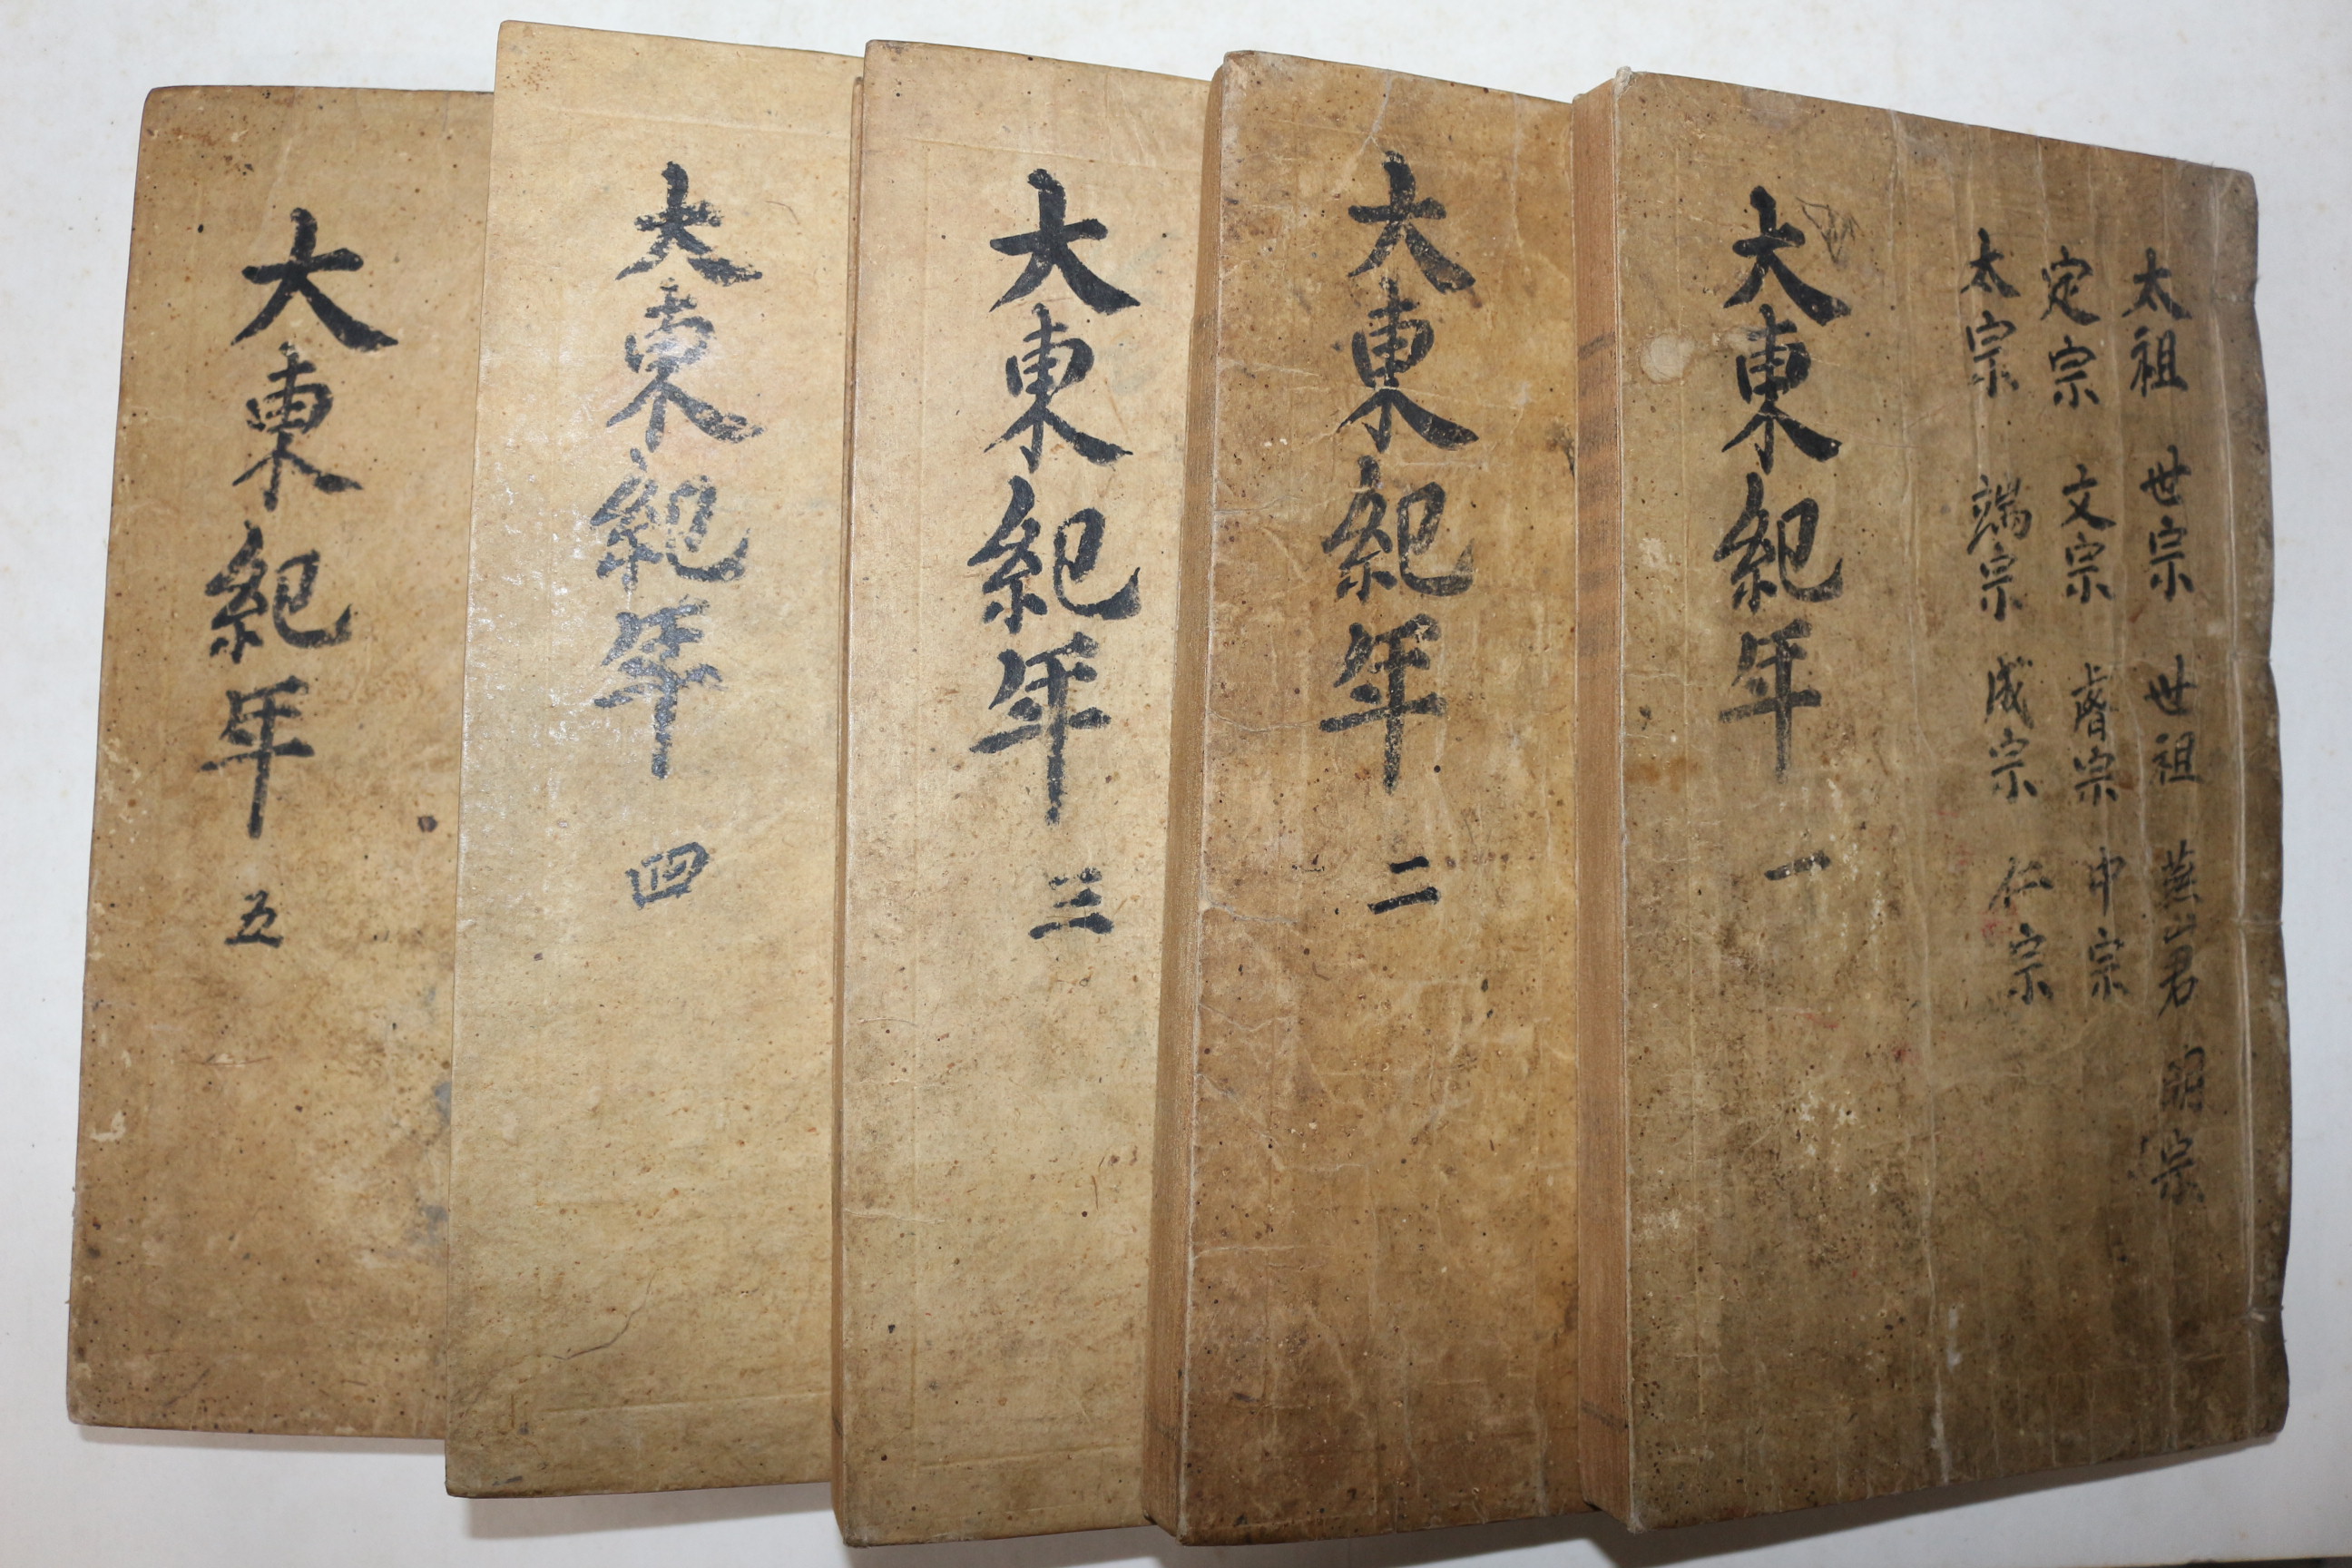 太祖 世宗 世祖 燕山君 明宗
定宗 文宗 睿宗 中宗
太宗 端宗 成宗 仁宗
大東紀年 一
大東紀年 二
大東紀年 三
大東紀年 四
大東紀年 五